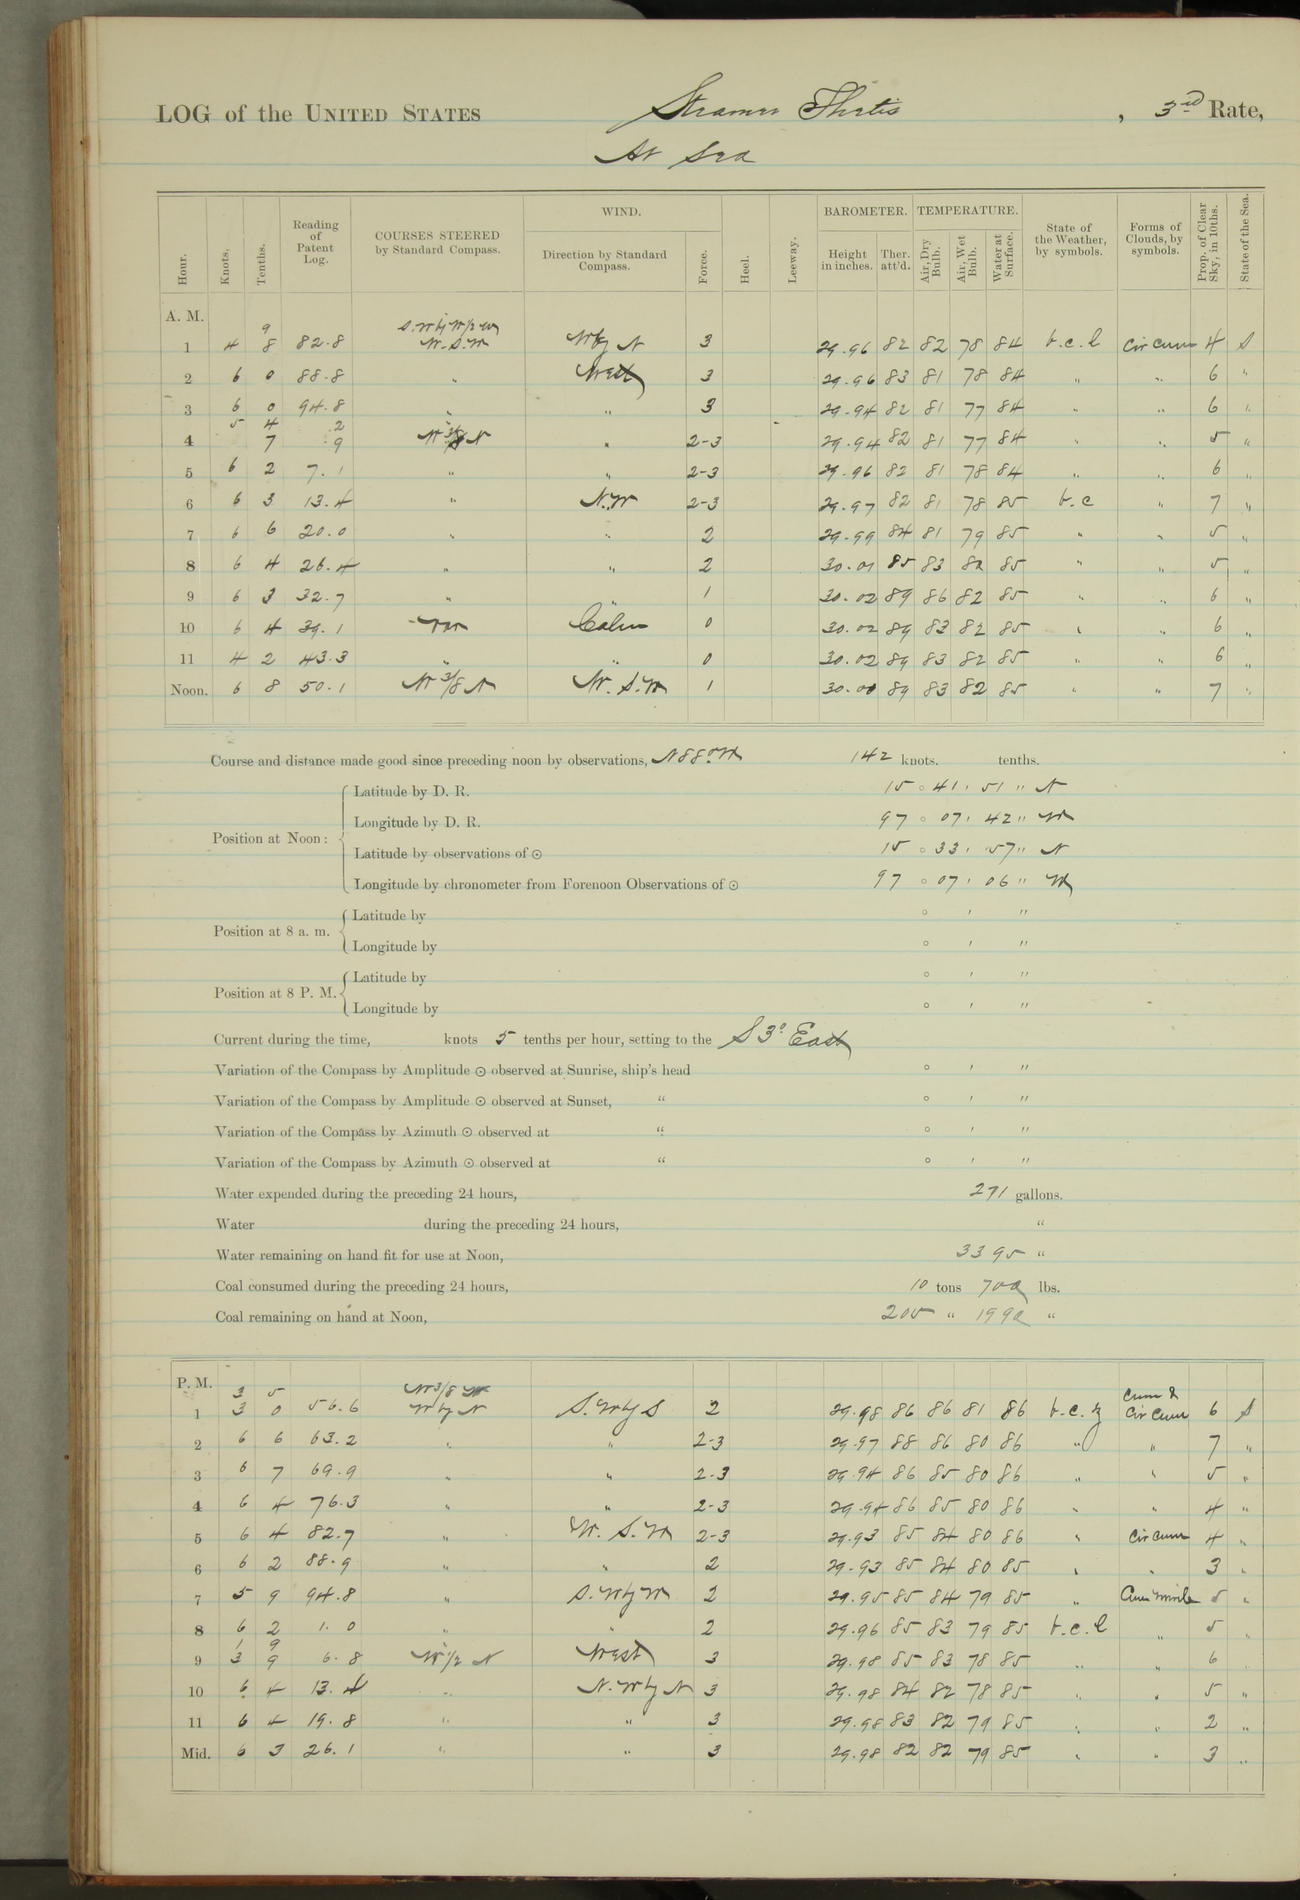 LOG of the UNITED STATES Steamer Thetis, 3rd Rate,
At Sea
Hour. Knots. Tenths. Reading of Patent Log. COURSES STEERED by Standard Compass. WIND. Direction by Standard Compass. Force. Heel. Leeway. BAROMETER. Height in inches. Ther. att'd. TEMPERATURE. Air, Dry Bulb. Air, Wet Bulb. Water at Surface. State of the Weather, by symbols. Forms of Clouds, by symbols. Prop. of Clear Sky, in 10ths. State of the Sea.
A. M.
9 S.W by W 1/2 W
1 4 8 82.8 W.S.W W by N 3 29.96 82 82 78 84 b.c.l Cir Cum 4 S
2 6 0 88.8 " West 3 29.96 83 81 78 84 " " 6 "
3 6 0 94.8 " " 3 29.94 82 81 77 84 " " 6 "
5 4 .2
4 7 .9 W 3/8 N " 2-3 29.94 82 81 77 84 " " 5 "
5 6 2 7.1 " " 2-3 29.96 82 81 78 84 " " 6 "
6 6 3 13.4 " N.W 2-3 29.97 82 81 78 85 b.c " 7 "
7 6 6 20.0 " " 2 29.99 84 81 79 85 " " 5 "
8 6 4 26.4 " " 2 30.01 85 83 82 85 " " 5 "
9 6 3 32.7 " " 1 30.02 89 86 82 85 " " 6 "
10 6 4 39.1 Var Calm 0 30.02 89 83 82 85 " " 6 "
11 4 2 43.3 " " 0 30.02 89 83 82 85 " " 6 "
Noon. 6 8 50.1 W 3/8 N W.S.W 1 30.00 89 83 82 85 " " 7 "
Course and distance made good since preceding noon by observations, N 88° W 142 knots. tenths.
Latitude by D. R. 15 ° 41 ' 51 " N
Longitude by D. R. 97 ° 07 ' 42 " W
Position at Noon:
Latitude by observations of ☉ 15 ° 33 ' 57 " N
Longitude by chronometer from Forenoon Observations of ☉ 97 ° 07 ' 06 " W
Latitude by ° ' "
Position at 8 a. m.
Longitude by ° ' "
Latitude by ° ' "
Position at 8 P. M.
Longitude by ° ' "
Current during the time, knots 5 tenths per hour, setting to the S 3° East
Variation of the Compass by Amplitude ☉ observed at Sunrise, ship's head ° ' "
Variation of the Compass by Amplitude ☉ observed at Sunset, " ° ' "
Variation of the Compass by Azimuth ☉ observed at " ° ' "
Variation of the Compass by Azimuth ☉ observed at " ° ' "
Water expended during the preceding 24 hours, 271 gallons.
Water during the preceding 24 hours, "
Water remaining on hand fit for use at Noon, 3395 "
Coal consumed during the preceding 24 hours, 10 tons 700 lbs.
Coal remaining on hand at Noon, 205 " 1990 "
P. M. 3 5 W 3/8 Cum &
1 3 0 56.6 W by N S.W by S 2 29.98 86 86 81 86 b.c.z Cir Cum 6 S
2 6 6 63.2 " " 2-3 29.97 88 86 80 86 " " 7 "
3 6 7 69.9 " " 2-3 29.94 86 85 80 86 " " 5 "
4 6 4 76.3 " " 2-3 29.94 86 85 80 86 " " 4 "
5 6 4 82.7 " W.S.W 2-3 29.93 85 84 80 86 " Cir Cum 4 "
6 6 2 88.9 " " 2 29.93 85 84 80 85 " " 3 "
7 5 9 94.8 " S.W by W 2 29.95 85 84 79 85 " 5 "
8 6 2 1.0 " " 2 29.96 85 83 79 85 b.c.l " 5 "
1 9
9 3 9 6.8 W 1/2 N West 3 29.98 85 83 78 85 " " 6 "
10 6 4 13.4 " N.W by N 3 29.98 84 82 78 85 " " 5 "
11 6 4 19.8 " " 3 29.98 83 82 79 85 " " 2 "
Mid. 6 3 26.1 " " 3 29.98 82 82 79 85 " " 3 "